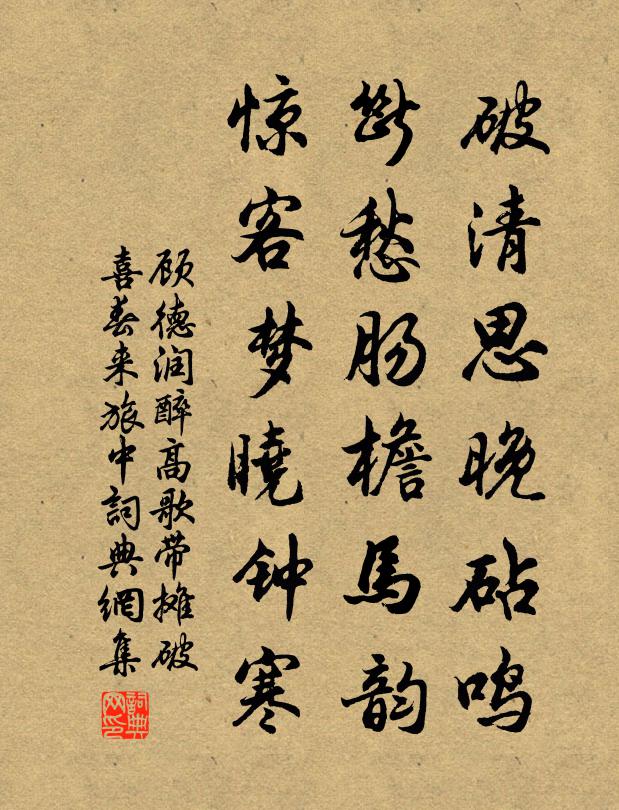 破清思晚砧鸣
断愁肠檐馬韵
惊客梦曉钟寒
顾德润醉高歌带摊破
喜春来旅中詞典網集
詞典
网印